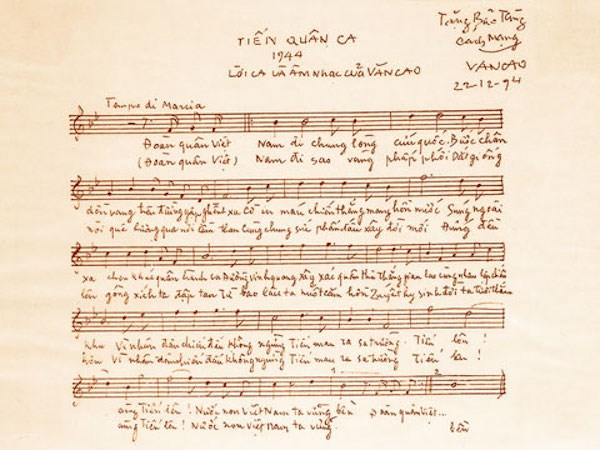 TIẾN QUÂN CA
1944
LỜI CA VÀ ÂM NHẠC CỦA VĂN CAO
Tặng Bảo Tàng
Cách Mạng
VĂN CAO
22-12-94
Tempo di Marcia
Đoàn quân Việt Nam đi chung lòng cứu quốc. Bước chân
(Đoàn quân Việt) Nam đi sao vàng phấp phới Dắt giống
dồn vang trên đường gập ghềnh xa Cờ in máu chiến thắng mang hồn nước Súng ngoài
nòi quê hương qua nơi lầm than Cùng chung sức phấn đấu xây đời mới Đứng đều
xa chen khúc quân hành ca Đường vinh quang xây xác quân thù Thắng gian lao cùng nhau lập chiến
lên gông xích ta đập tan Từ bao lâu ta nuốt căm hờn Quyết hy sinh đời ta tươi thắm
khu Vì nhân dân chiến đấu không ngừng Tiến mau ra sa trường. Tiến lên!
hơn Vì nhân dân chiến đấu không ngừng Tiến mau ra sa trường Tiến lên!
cùng Tiến lên! Nước non Việt Nam ta vững bền Đoàn quân Việt...
cùng Tiến lên! Nước non Việt Nam ta vững
bền